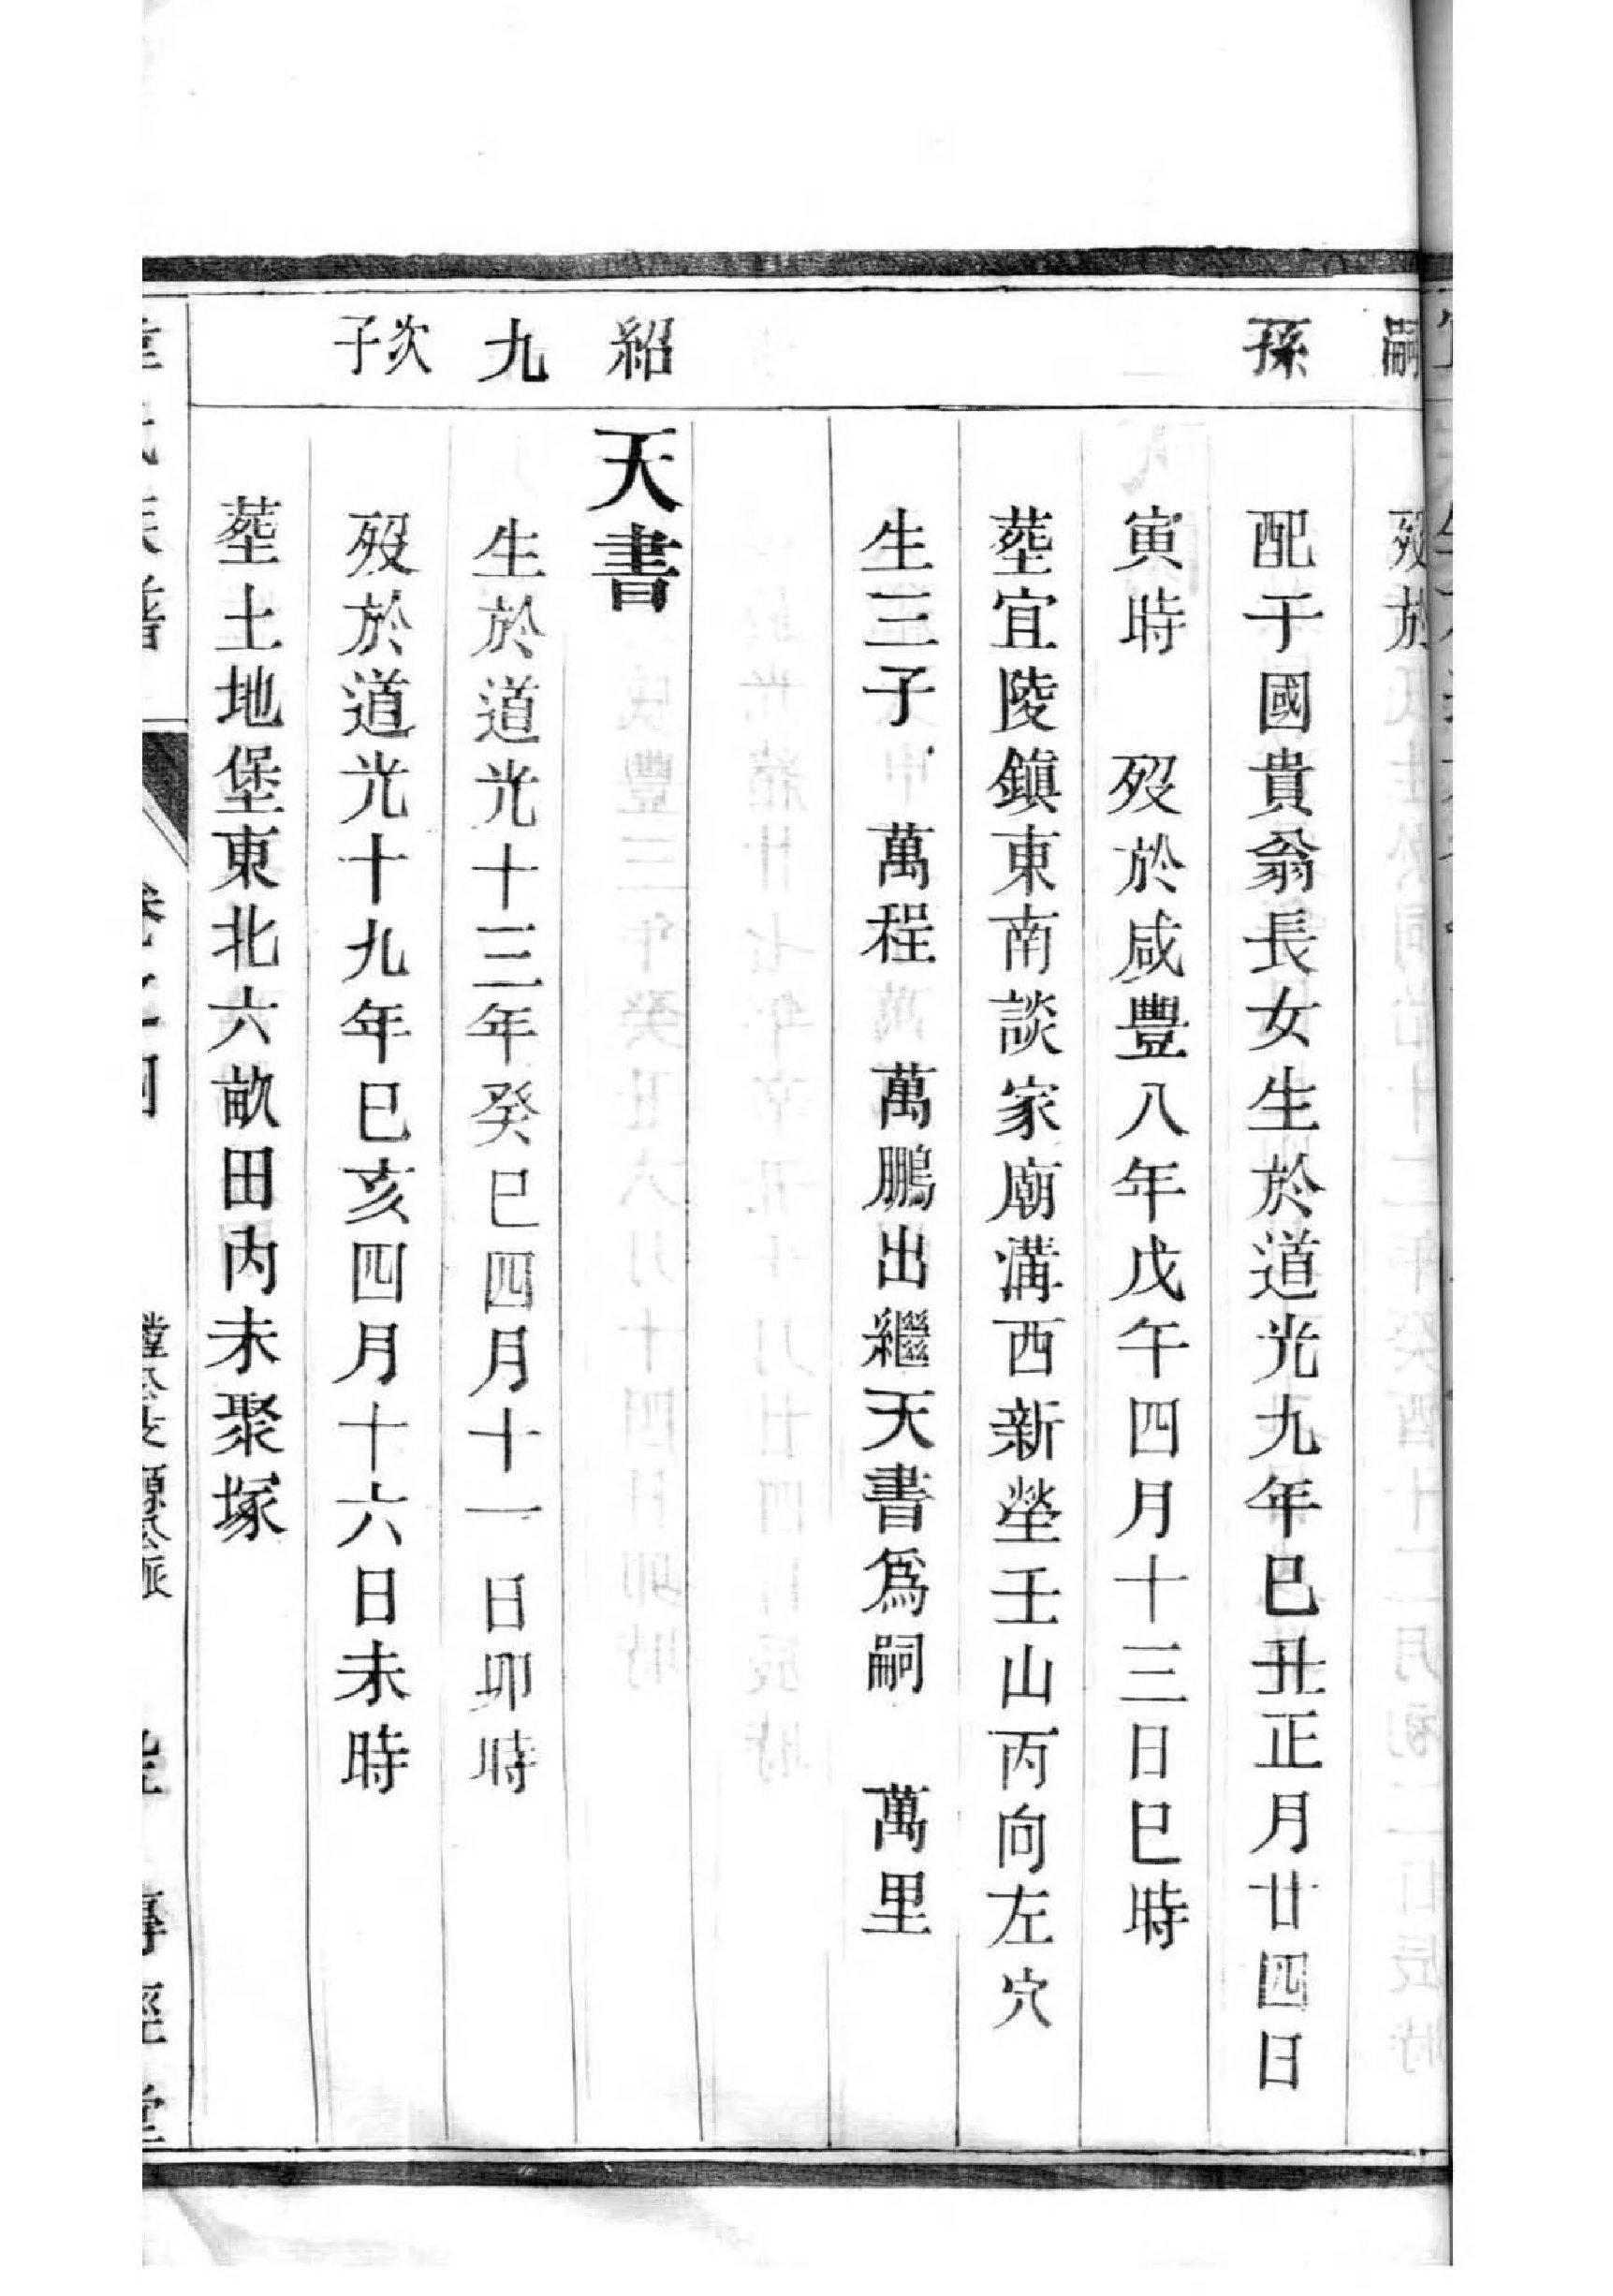 嗣
歿於
孫
配于國貴翁長女生於道光九年巳丑正月廿四日
寅時　歿於咸豐八年戊午四月十三日巳時
塟宜陵鎮東南談家廟溝西新塋壬山丙向左穴
生三子　萬程　萬鵬出繼天書爲嗣　萬里
紹
天書
九
生於道光十三年癸巳四月十一日卯時
次子
歿於道光十九年巳亥四月十六日未時
塟土地堡東北六畝田內未聚塚